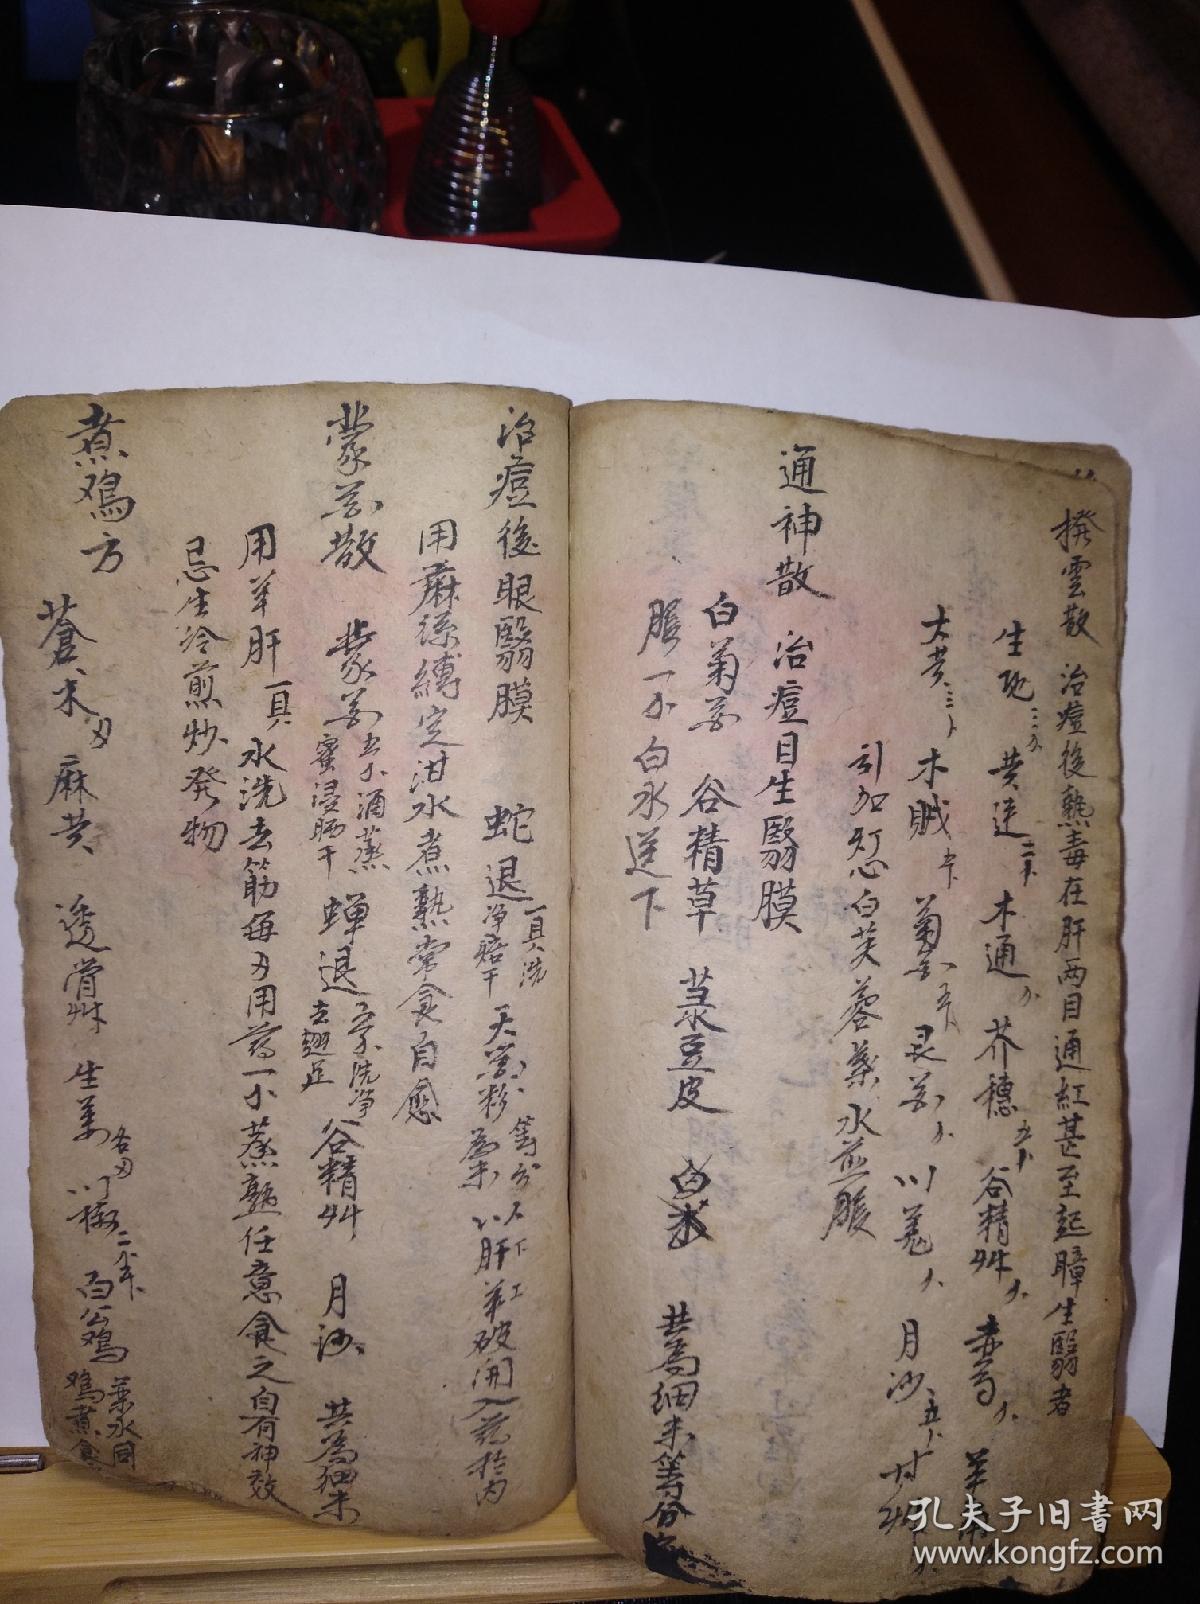 撥雲散 治痘後熱毒在肝兩目通紅甚至起瞕生翳者
生地 黄連 木通 芥穗 谷精艸 赤芍
大黄 木賊 菊花 川羌 月沙 甘艸
引加灯心白芙蓉葉水煎服
通神散 治痘目生翳膜
白菊花 谷精草 菉豆皮 共為細末等分
服一个白水送下
治痘後眼翳膜 蛇退一具洗净焙干 天花粉等分為末 以肝羊破開入葯於内
用麻條縛定泔水煮熟常食自愈
蒙花散 蒙花酒蒸蜜浸晒干 蝉退洗净去翅足 谷精艸 月沙 共為細末
用羊肝一具水洗去筋每刃用葯一个蒸熟任意食之自有神效
忌生冷煎炒發物
煮鸡方
蒼术刃 麻黄 透骨艸 生姜各刃 川椒 白公鸡 葉水同鸡煮食
孔夫子旧书网
www.kongfz.com